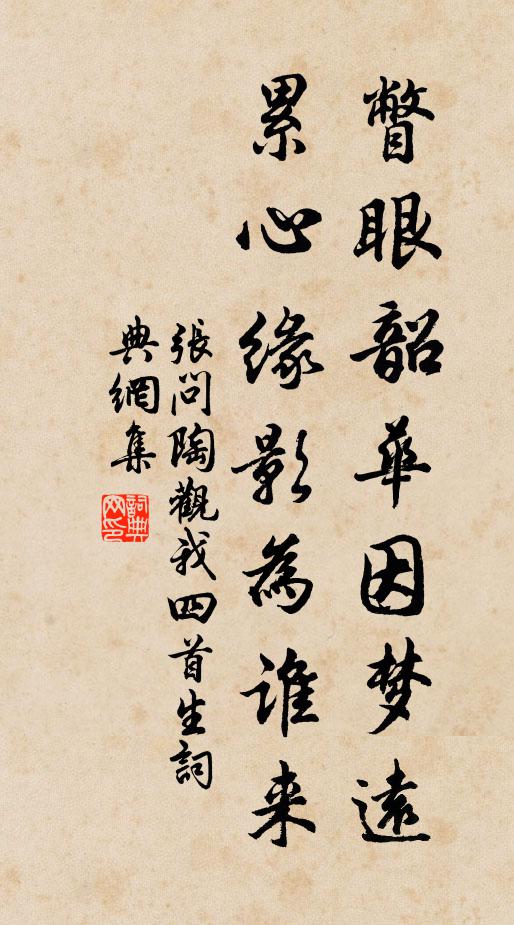 瞥眼韶華因梦遠
累心緣影為誰来
張問陶觀我四首生詞
典網集
詞典網印